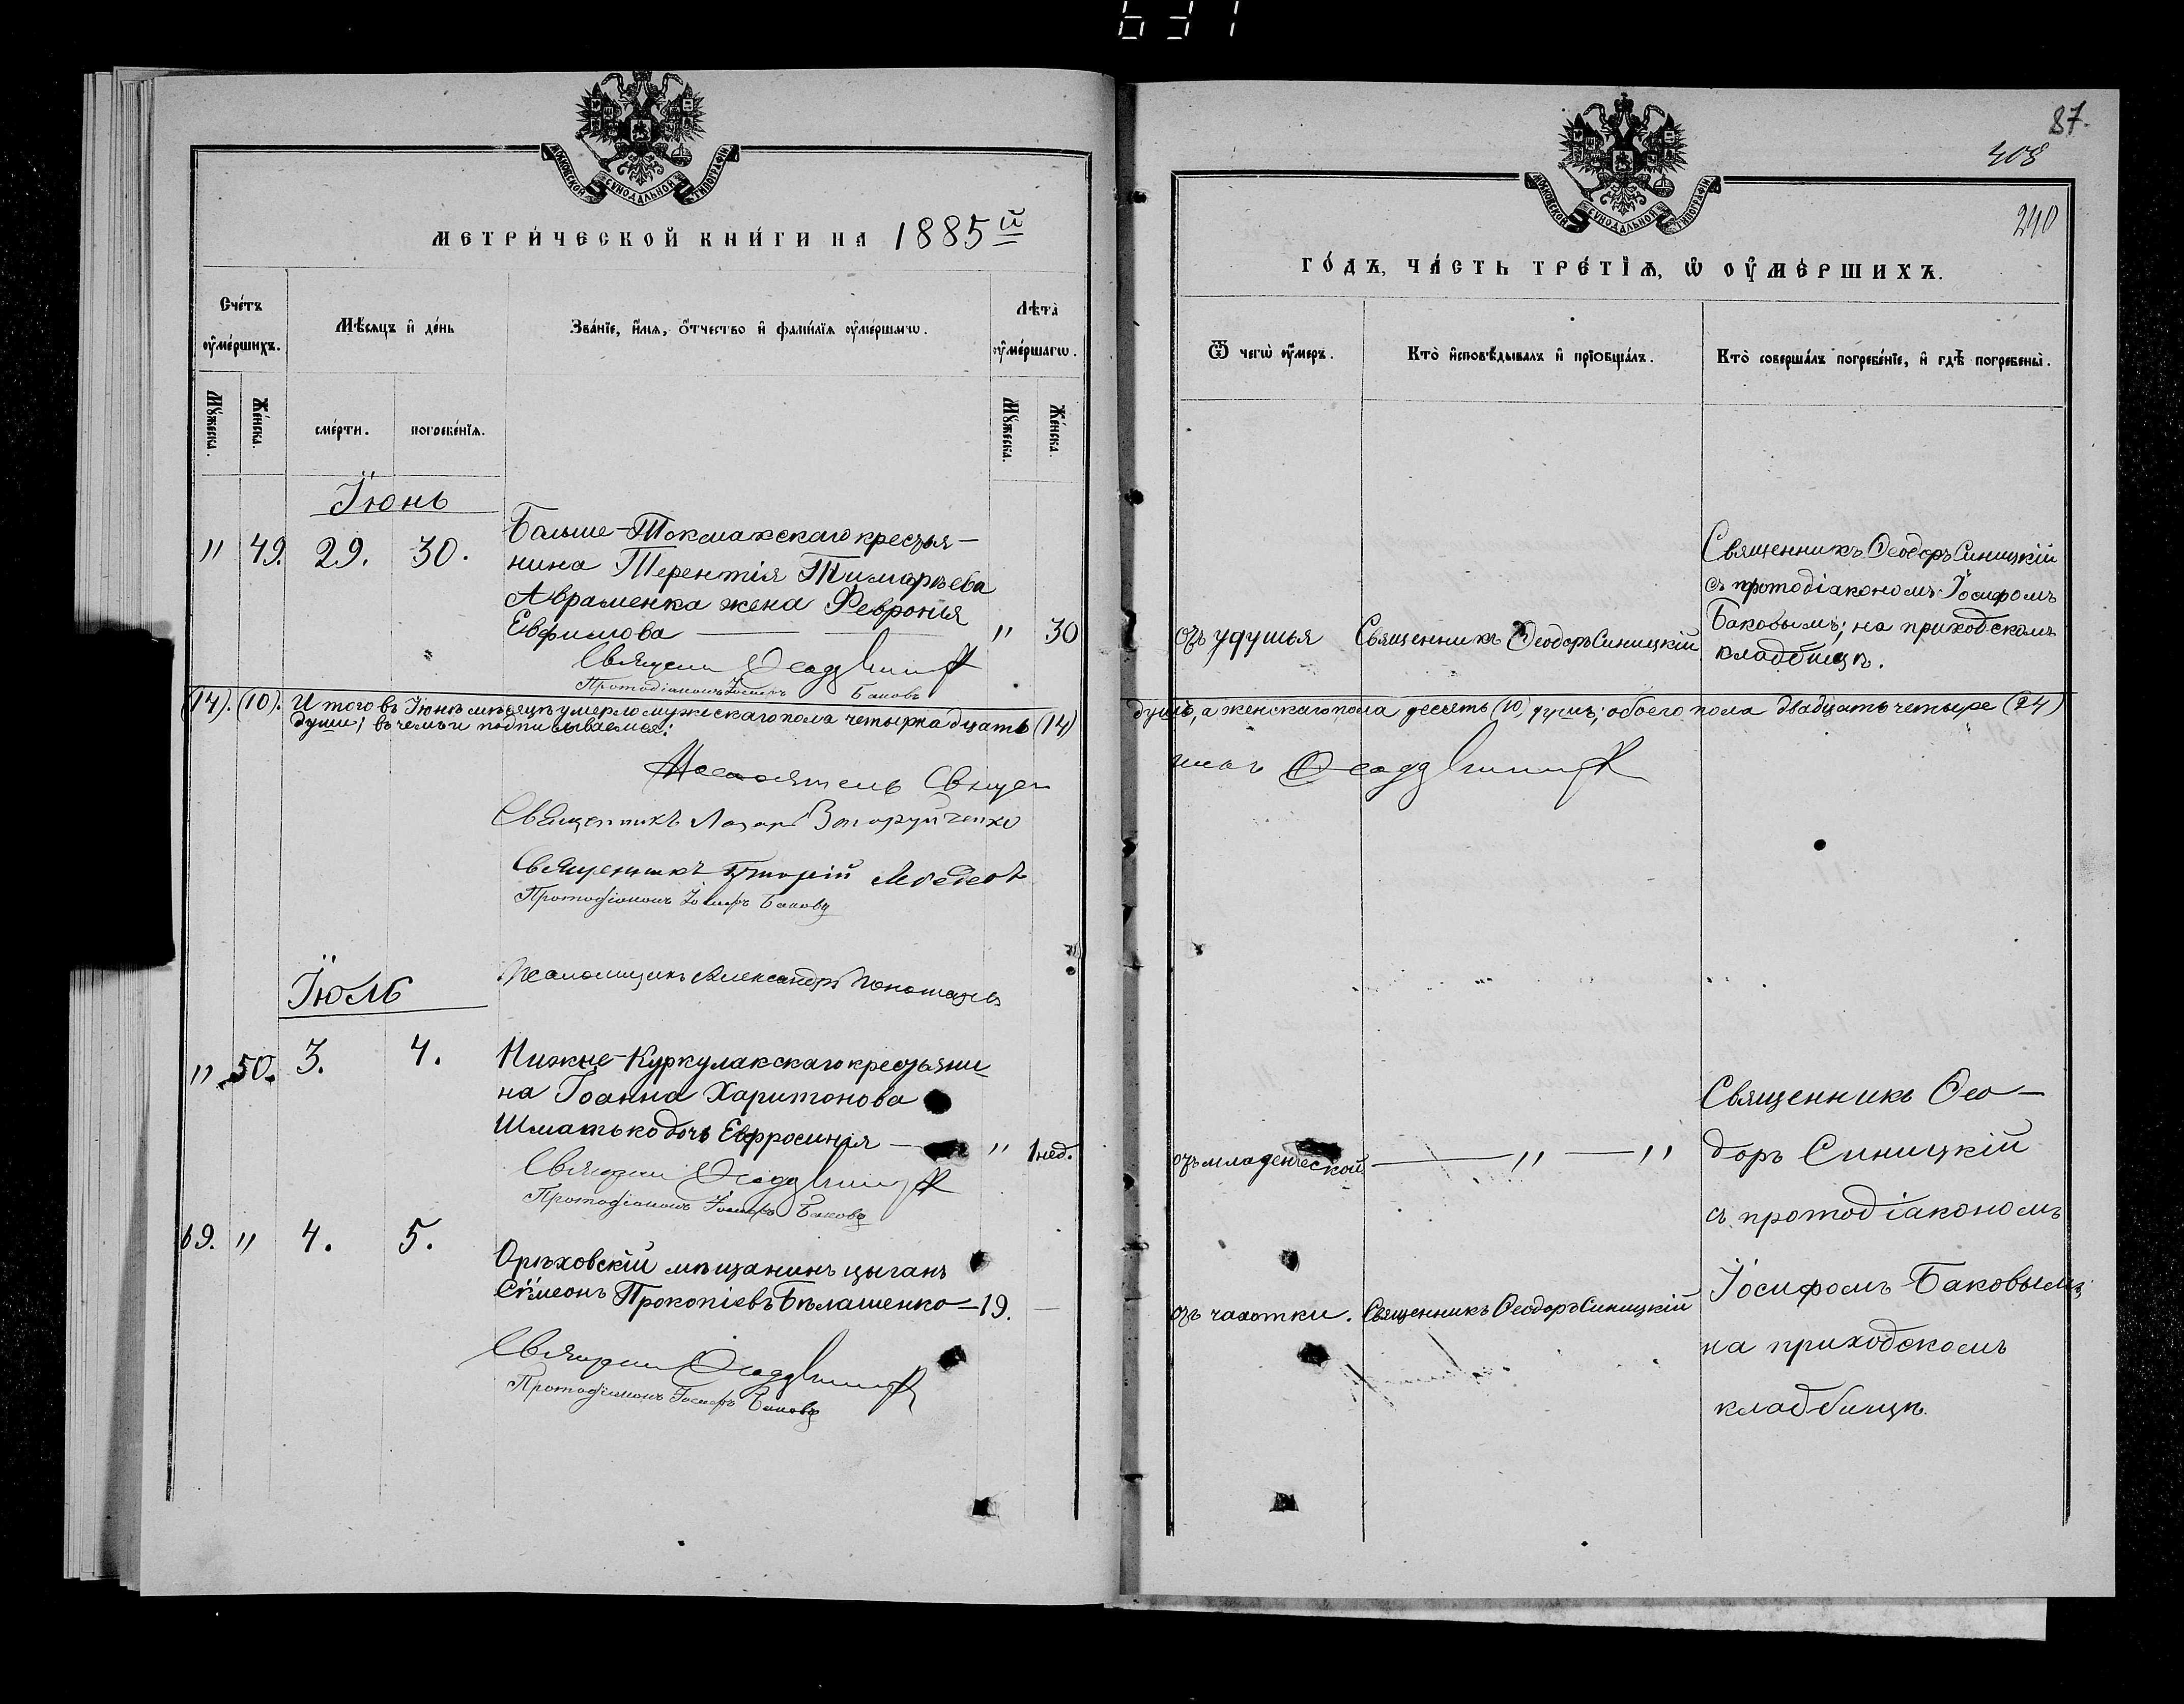 631
МОСКОВСКОЙ СѴНОДАЛЬНОЙ ТИПОГРАФІИ
МЕТРИ́ЧЕСКОЙ КНИ́ГИ НА 1885й
Сче́тъ ᲂу҆ме́ршихъ.
Мѣ́сяцъ и҆ де́нь
Зва́нїе, и҆́мѧ, ѻ҆́тчество и҆ фами́лїѧ ᲂу҆ме́ршагѡ.
Лѣта̀ ᲂу҆ме́ршагѡ.
Мꙋ́жеска.
Же́нска.
сме́рти.
погребе́нїѧ.
Мꙋ́жеска.
Же́нска.
Іюнь
" 49. 29. 30.
Больше-Токмакскаго крестья-
нина Терентія Тимофѣева
Авраменка жена Феврония
Евфимова — " 30
Священ Ѳеод Синиц
Протодіаконъ Іосифъ Баковъ
(14). (10). Итого въ Іюнѣ мѣсяцѣ умерло мужескаго пола четырнадцать (14)
души; въ чемъ и подписываемся:
Настоятель Священ
Священникъ Лазарь Вторуйченко
Священникъ Григорій Лебедевъ
Протодіаконъ Іосифъ Баковъ
Псаломщикъ Александръ
Іюль
" 50. 3. 4.
Нижне-Куркулакскаго крестьяни-
на Іоанна Харитонова
Шматько дочь Евфросинія — " 1 нед.
Священ Ѳеод Синиц
Протодіаконъ Іосифъ Баковъ
69. " 4. 5.
Орѣховскій мѣщанинъ цыганъ
Сѵмеонъ Прокопіевъ Бѣлашенко — 19. —
Священ Ѳеод Синиц
Протодіаконъ Іосифъ Баковъ
87.
408
240
МОСКОВСКОЙ СѴНОДАЛЬНОЙ ТИПОГРАФІИ
ГО́ДЪ, ЧА́СТЬ ТРЕ́ТЇѦ, Ѡ҆ ОУ҆МЕ́РШИХЪ.
Ѿ чегѡ̀ ᲂу҆́меръ.
Кто̀ и҆сповѣ́дывалъ и҆ прїѻбща́лъ.
Кто̀ соверша́лъ погребе́нїе, и҆ гдѣ̀ погребены̀.
отъ удушья
Священникъ Ѳеодоръ Синицкій
Священникъ Ѳеодоръ Синицкій
съ протодіакономъ Іосифомъ
Баковымъ; на приходскомъ
кладбищѣ.
душъ, а женскаго пола десять (10) душъ; обоего пола двадцать четыре (24)
никъ Ѳеод Синиц
отъ младенческой — " — "
Священникъ Ѳео-
доръ Синицкій
съ протодіакономъ
Іосифомъ Баковымъ;
на приходскомъ
кладбищѣ.
отъ чахотки. Священникъ Ѳеодоръ Синицкій